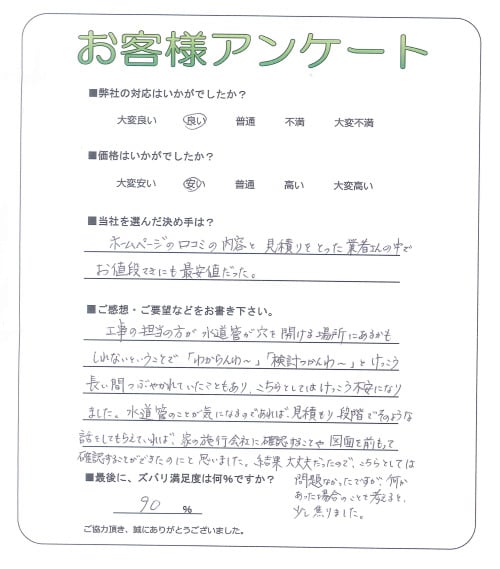 お客様アンケート
■弊社の対応はいかがでしたか？
大変良い 良い 普通 不満 大変不満
■価格はいかがでしたか？
大変安い 安い 普通 高い 大変高い
■当社を選んだ決め手は？
ホームページの口コミの内容と見積りをとった業者さんの中で
お値段てきにも最安値だった。
■ご感想・ご要望などをお書き下さい。
工事の担当の方が水道管が穴を開ける場所にあるかも
しれないということで「わからんわ～」「検討つかんわ～」とけっこう
長い間つぶやかれていたこともあり、こちらとしてはけっこう不安になり
ました。水道管のことが気になるのであれば、見積もり段階でそのような
話をしてもらえていれば、家の施行会社に確認することや図面を前もって
確認することができたのにと思いました。結果大丈夫だったので、こちらとしては
問題なかったですが、何か
あった場合のことを考えると、
少し焦りました。
■最後に、ズバリ満足度は何％ですか？
90 %
ご協力頂き、誠にありがとうございました。